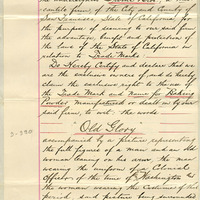 cantile firm of the City
San Francisco, State of California, for
the purpose of securing to our said firm
the advantage, benefit and protection of
the laws of the State of California in
relation to Trade Marks
Do Hereby Certify and declare that we
are the exclusive owners of, and do hereby
claim the exclusive right to the use of
the Trade Mark and Name for Baking
Powder manufactured or dealt in by our
said firm, to wit: the words
Old Glory
accompanied by a picture representing
the full figures of a man and an old
woman leaning on his arm, the man
wearing the uniform of a Colonial
Officer of the time of Washington and
the woman wearing the Costume of this
period, said picture being surrounded